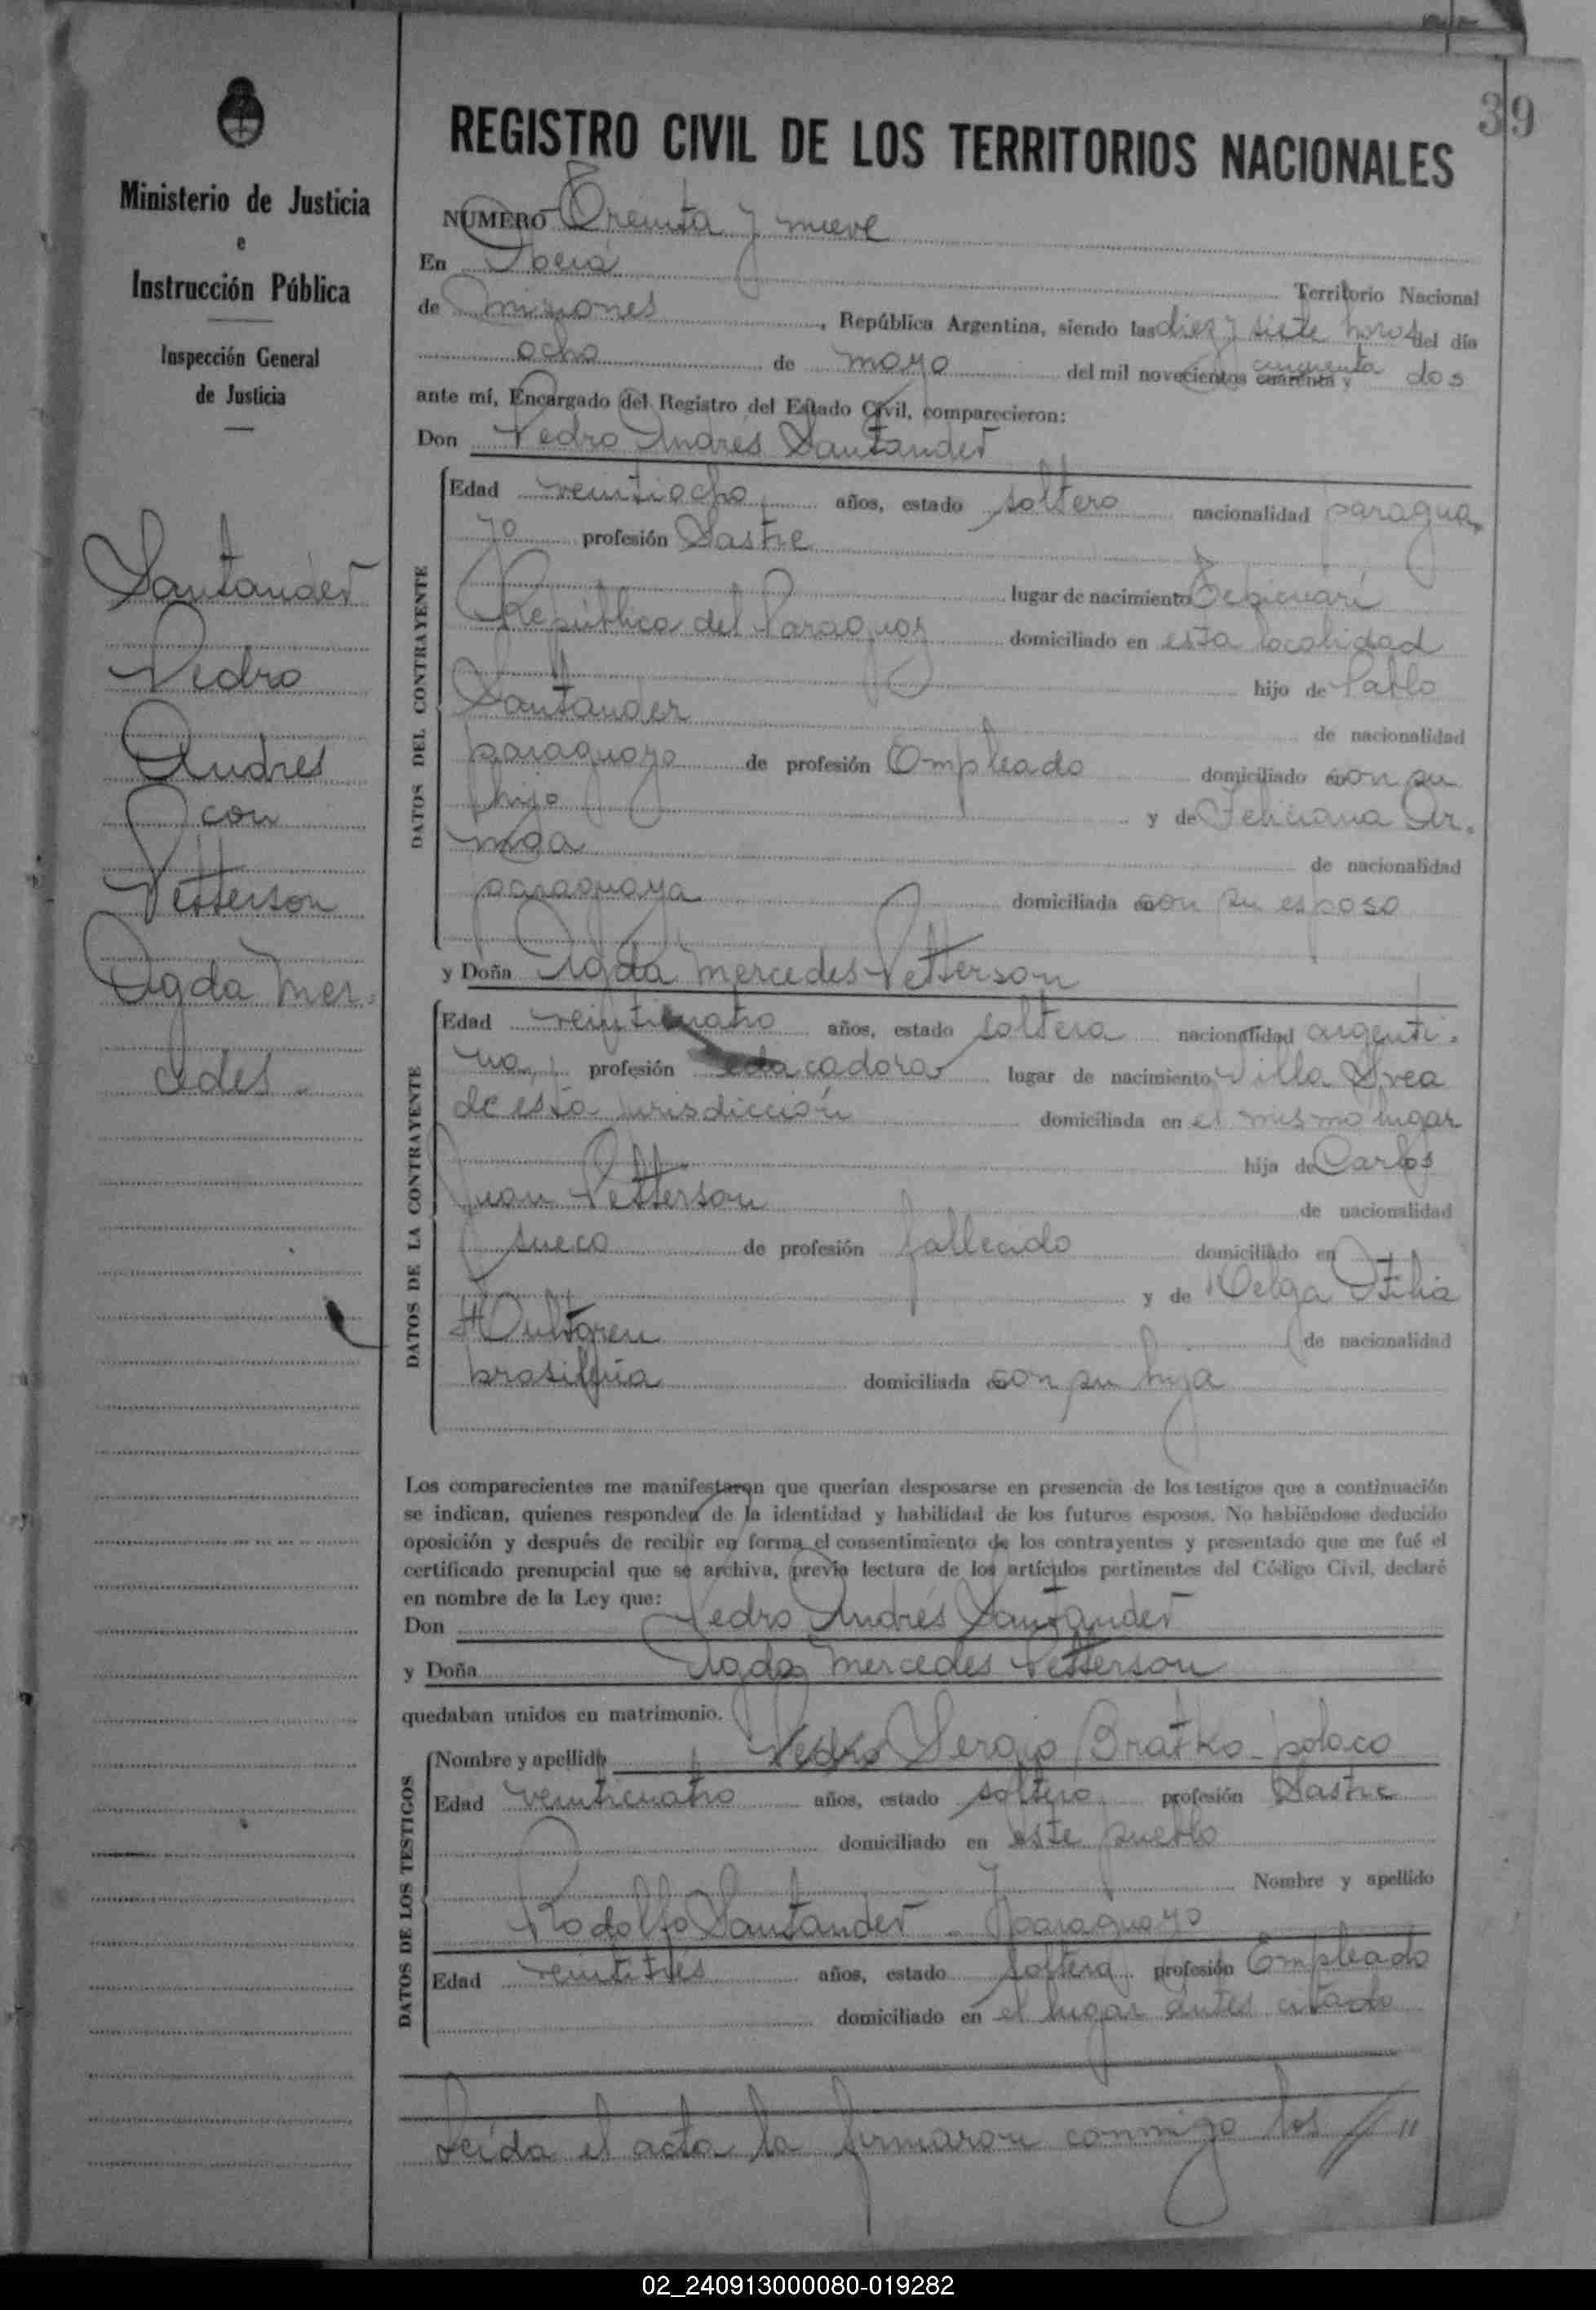 39
Ministerio de Justicia
e
Instrucción Pública
Inspección General
de Justicia
Santander
Pedro
Andres
con
Petterson
Agda Mer-
cedes.-
REGISTRO CIVIL DE LOS TERRITORIOS NACIONALES
NUMERO Treinta y nueve
En Oberá
Territorio Nacional
de Misiones, República Argentina, siendo las diez y siete horas del día
ocho de mayo del mil novecientos cuarenta y cincuenta dos
ante mí, Encargado del Registro del Estado Civil, comparecieron:
Don Pedro Andrés Santander
DATOS DEL CONTRAYENTE
Edad veintiocho años, estado soltero nacionalidad paragua-
yo profesión Sastre
lugar de nacimiento Tebicuarí
República del Paraguay domiciliado en esta localidad
hijo de Pablo
Santander
de nacionalidad
paraguayo de profesión Empleado domiciliado con su
hijo y de Feliciana Ar-
mоa
de nacionalidad
paraguaya domiciliada con su esposo
y Doña Agda Mercedes Petterson
DATOS DE LA CONTRAYENTE
Edad veinticuatro años, estado soltera nacionalidad argenti-
na, profesión educadora lugar de nacimiento Villa Svea
de esta jurisdicción domiciliada en el mismo lugar
hija de Carlos
Juan Petterson de nacionalidad
sueco de profesión fallecido domiciliado en
y de Helga Otilia
Hultgren de nacionalidad
brasileña domiciliada con su hija
Los comparecientes me manifestaron que querían desposarse en presencia de los testigos que a continuación
se indican, quienes responden de la identidad y habilidad de los futuros esposos. No habiéndose deducido
oposición y después de recibir en forma el consentimiento de los contrayentes y presentado que me fué el
certificado prenupcial que se archiva, previa lectura de los artículos pertinentes del Código Civil, declaré
en nombre de la Ley que:
Don Pedro Andrés Santander
y Doña Agda Mercedes Petterson
quedaban unidos en matrimonio.
DATOS DE LOS TESTIGOS
Nombre y apellido Pedro Sergio Bratko - polaco
Edad veinticuatro años, estado soltero profesión Sastre
domiciliado en este pueblo
Nombre y apellido
Rodolfo Santander - paraguayo
Edad veintitrés años, estado soltero profesión Empleado
domiciliado en el lugar antes citado
Leída el acta la firmaron conmigo los //"
02_240913000080-019282